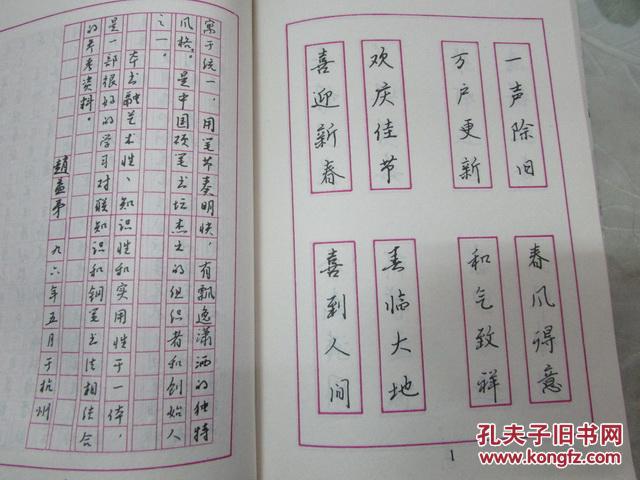 寓于统一，用笔节奏明快，有飘逸潇洒的独特
风格，是中国硬笔书坛杰出的组织者和创始人
之一。
本书融艺术性、知识性和实用性于一体，
是一部很好的学习对联知识和钢笔书法相结合
的参考资料。
九六年五月于杭州
一声除旧
万户更新
欢庆佳节
喜迎新春
春风得意
和气致祥
春临大地
喜到人间
1
孔夫子旧书网
www.kongfz.com